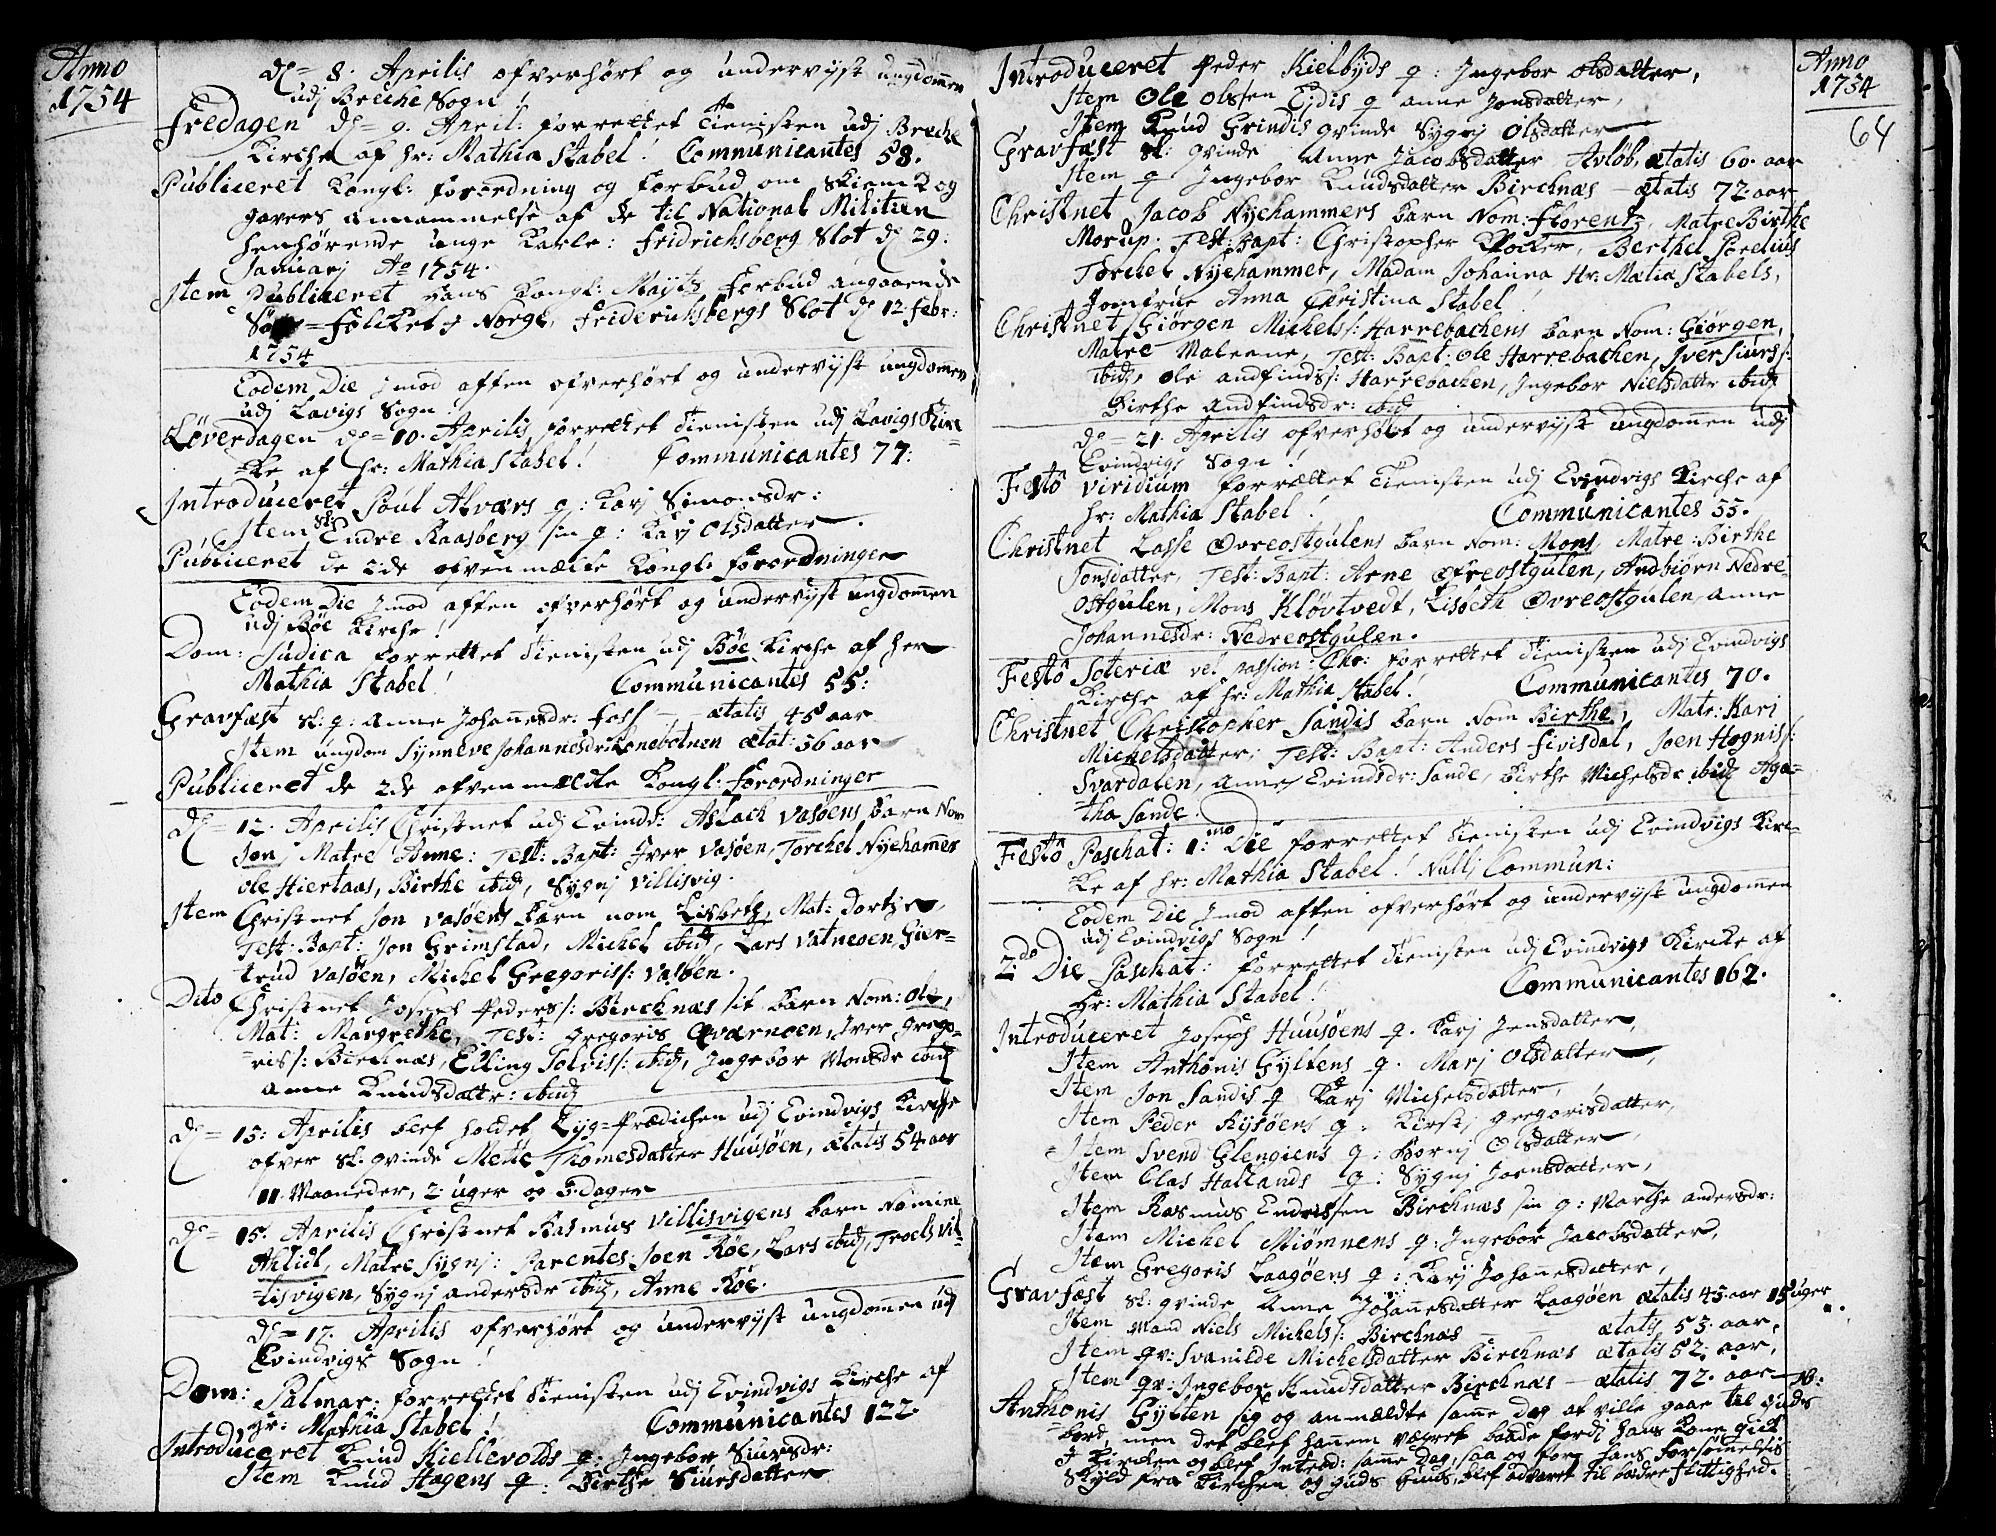 Anno
1754
d= 8. Aprilis ofverhørt og undervyst ungdommen
udj Breche Sogn!
Fredagen d= 9. April: forrettet Tienisten udj Breche
Kirche af hr: Mathia Stabel! Communicantes 58.
Publiceret Kongl: forordning og forbud om Skienk og
gavers annammelse af de til National Militien
henhørende unge Karle: Fridrichsberg Slot d 29:
Januarj Ao 1754.
Item Publiceret hans Kongl: Mayts forbud angaaende
Søe=Folcket i Norge, Friderichsbergs Slot d 12. Febr:
1754
Eodem Die imod aften ofverhørt og undervyst ungdommen
udj Lavigs Sogn!
Løverdagen d= 10. Aprilis forrettet Tienisten udj Lavigs Kir=
=ke af hr: Mathia Stabel! Communicantes 77:
Introduceret Poul Alværs q: Karj Simonsdr:
Item Sl: Endre Raasberg sin q: Karj Olsdatter.
Publiceret de 2:de ofvenmælte Kongl: forordninger
Eodem Die imod aften ofverhørt og undervyst ungdommen
udj Bøe Kirche!
Dom: Judica forrettet Tienisten udj Bøe Kirche af her
Mathia Stabel! Communicantes 55:
Gravfæst sl: q: Anne Johannesdr: Foss — ætatis 45 aar
Item ungdom Synneve Johannesdr: Konebotnen ætat: 56 aar
Publiceret de 2:de ofvenmældte Kongl: forordninger
d= 12. Aprilis Christnet udj Evindv: Aslach Vasøens barn Nom
Jon, Matre Anne: Test: Bapt: Iver Vasøen, Torchel Nyehammer
Ole Hiertaas, Birthe ibid, Sygnj Villisvig.
Item Christnet Jon Vasøens barn nom Lisbeth, Mat: Dortje,
Test: Bapt: Jon Grimstad, Michel ibid, Lars Vatneoen, Gier=
trud Vasøen, Michel Gregoris/: Vasøen.
Dito Christnet Joseph Peders/: Birchnæs sit barn Nom: Ole,
Mat: Margrethe, Test: Gregoris Qværnoen, Iver Grego=
=ris/: Birchnæs, Elling Solvis/: ibid, Ingebor Monsdr ibid
Anne Knudsdattr: ibid
d= 15: Aprilis blef holdet Lyg=Prædichen udj Evindvigs Kirche
ofver sl: qvinde Mette Thomesdatter Huusøen, ætatis 54 aar
11. Maaneder, 2 uger og 3 dager
d= 15. Aprilis Christnet Rasmus Villisvigens barn Nomine
Ahlidt, Matre Sygnj: Parentes: Joen Røe, Lars ibid, Troels Vil=
=lisvigen, Sygnj Andersdr ibid, Anne Røe.
d= 17. Aprilis ofverhørt og undervyst ungdommen udj
Evindvigs Sogn!
Dom: Palmar: forrettet Tienisten udj Evindvigs Kirche af
hr: Mathia Stabel! Communicantes 122.
Introduceret Knud Kiellevolds q: Ingebor Siursdr:
Item Knud Hagens q: Birthe Siursdatter
Introduceret Peder Kielbyds q: Ingebor Olsdatter,
Item Ole Olsen Eidis q Anne Jonsdatter,
Item Knud Grindis qvinde Sygnj Olsdatter
Gravfæst sl: qvinde Anne Jacobsdatter Avløb, ætatis 60. aar
Item q Ingebor Knudsdatter Birchnæs — ætatis 72 aar
Christnet Jacob Nyehammers barn Nom: Florentz, Matre Birthe
Morup. Test: Bapt: Christopher Klocker, Berthel
Torchel Nyehammer, Madam Johanna Hr: Matia Stabels,
Jomfrue Anna Christina Stabel!
Christnet Giørgen Michels/: Harrebachens barn Nom: Giørgen,
Matre Malenne, Test: Bapt: Ole Harrebachen, Iver Siurs/:
ibid, Ole Andfinds/: Harrebachen, Ingebor Nielsdattr ibid
Birthe Andfindsdr: ibid
d= 21. Aprilis ofverhørt og undervyst ungdommen udj
Evindvigs Sogn!
Festo viridium forrættet Tienisten udj Evindvigs Kirche af
hr: Mathia Stabel! Communicantes 55.
Christnet Lasse Øvreostgulens barn Nom: Mons, Matre: Birthe
Jonsdatter, Test: Bapt: Arne Øfreostgulen, Andbiørn Nedre=
Ostgulen, Mons Kløvtvedt, Lisbeth Øvreostgulen, Anne
Johannesdr: Nedreostgulen.
Festo Soteriæ vel passion: Chr: forrettet Tienisten udj Evindvigs
Kirche af hr: Mathia Stabel! Communicantes 70.
Christnet Christopher Sandis barn Nom Birthe, Matr: Kari
Michelsdatter, Test: Bapt: Anders Fivisdal, Joen Hognis/:
Svardalen, Anne Evindsdr: Sande, Birthe Michelsdr ibid Aga=
=tha Sande.
Festo Paschat: 1:mo Die forrettet Tienisten udj Evindvigs Kirc=
ke af hr: Mathia Stabel! Nullj Commun:
Eodem Die imod aften ofverhørt og undervyst ungdommen
udj Evindvigs Sogn!
2:do Die Paschat: forrettet Tienisten udj Evindvigs Kirche af
hr: Mathia Stabel! Communicantes 162.
Introduceret Joseph Huusøens q. Karj Jensdatter,
Item Anthonis Gyltens q. Marj Olsdatter,
Item Jon Sandis q Karj Michelsdatter,
Item Peder Rysøens q: Kirstj Gregorisdatter,
Item Svend Glengiens q: Bornj Olsdatter,
Item Clas Hallands q: Sygnj Joensdatter,
Item Rasmus Endresen Birchnæs sin q: Marthe Andersdr:
Item Michel Miømnens q: Ingebor Jacobsdatter,
Item Gregoris Laagøens q: Karj Johannesdatter,
Gravfæst sl: qvinde Anne Johannesdatter Laagøen ætatis 45. aar 15 uger
Item Mand Niels Michels/: Birchnæs — ætatis 53. aar,
Item qv: Svanilde Michelsdatter Birchnæs ætatis 52. aar,
Item qv: Ingebor Knudsdatter Birchnæs — ætatis 72. aar
Anthonis Gylten sig og anmældte samme dag at ville gaae til Guds
bord, men det blef hannem vægret baade fordj hans Kone gick
i Kirchen og blef Introd: samme Dag, saa og for hans forsømmelsis
Skyld fra Kirchen og Guds Huus, blef advaret til bædre flittighed.
Anno
1754
64